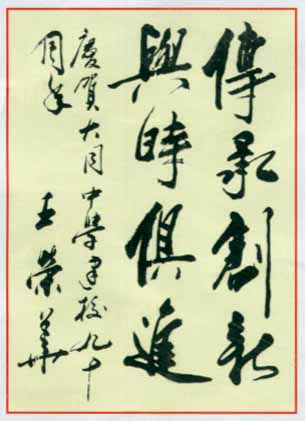 傳承創新
與時俱進
慶賀大同中學建校九十
周年
王榮華